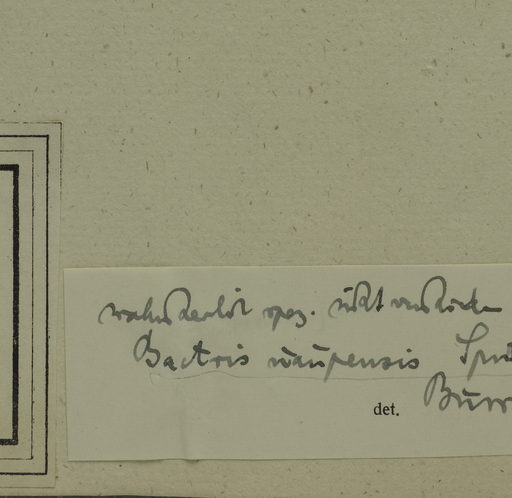 wahrscheinlich spez. nicht verschieden
Bactris uaupensis Spru
det. Burr